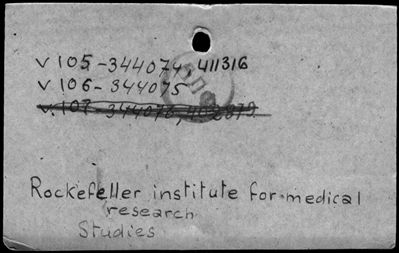 v 105-344074, 411316
v 106-344075
v. 107-344076, 402819
Rockefeller institute for medical
research
Studies